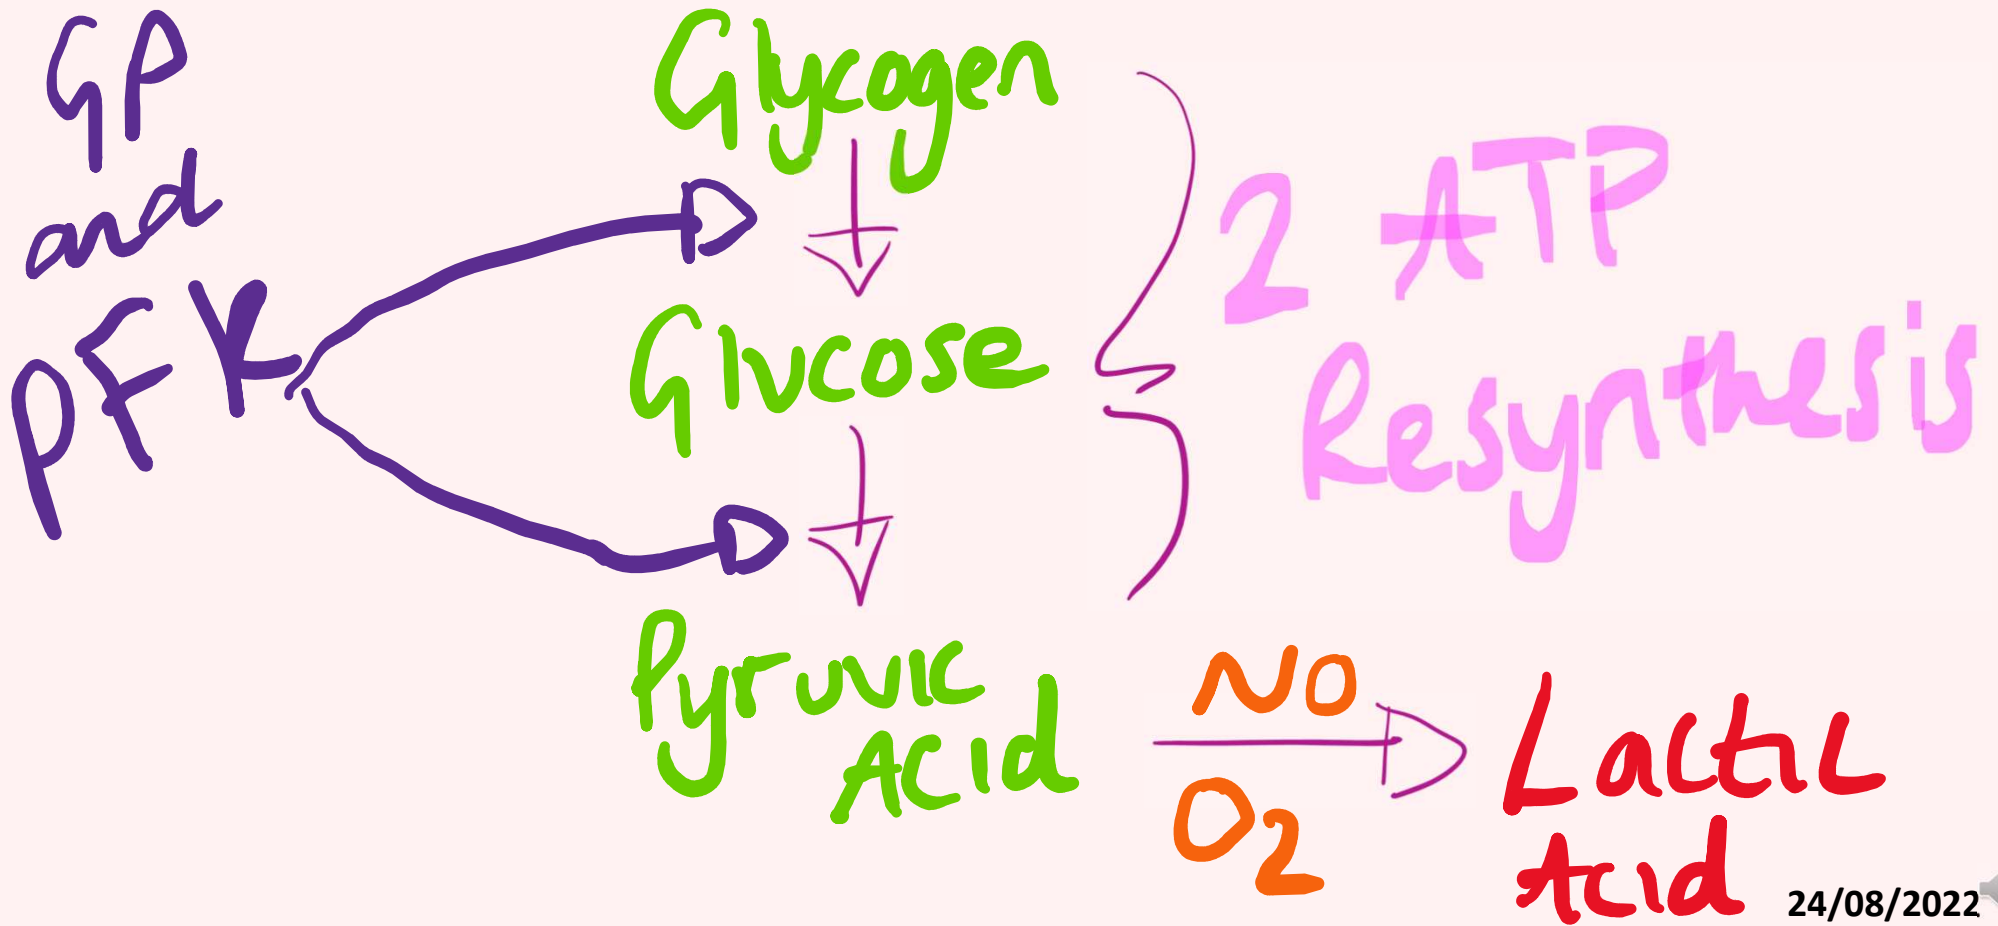 GP
and
PFK
Glycogen
Glucose
Pyruvic
Acid
2 ATP
Resynthesis
NO
O2
Lactic
Acid
24/08/2022